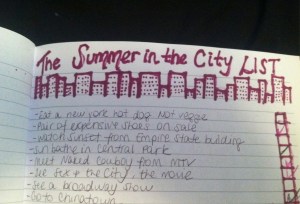 The Summer in the City LIST
-Eat a new york hot dog Not veggie
-Pair of expensive shoes on sale
-Watch sunset from Empire State building
-sunbathe in Central Park
-Meet Naked Cowboy from MTV
-see Sex & the City, the movie
-See a broadway show
-Go to Chinatown